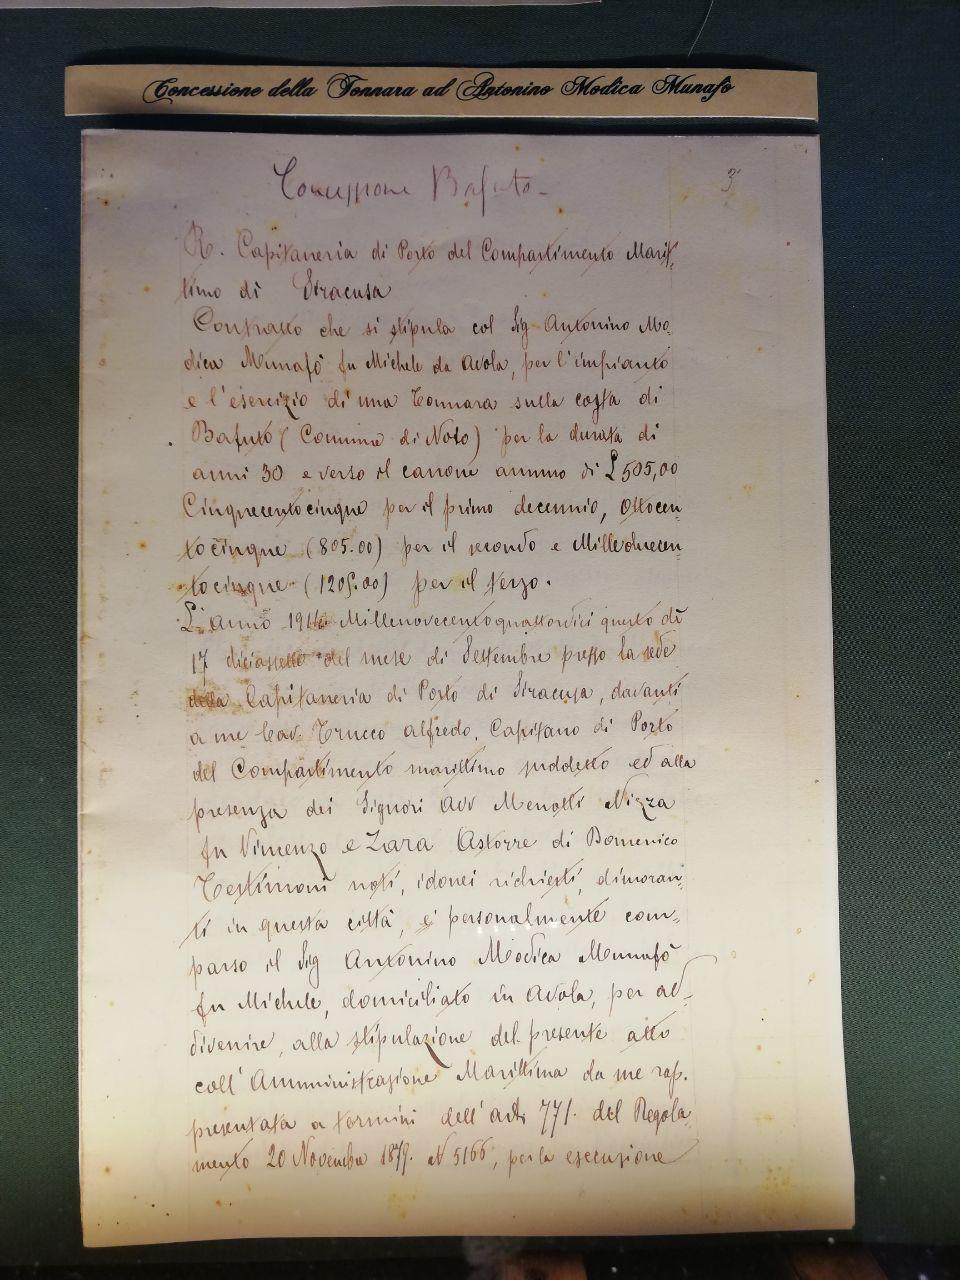 Concessione della Tonnara ad Antonino Modica Munafò
Concessione Bafuto -
3
R. Capitaneria di Porto del Compartimento Marit-
timo di Siracusa
Contratto che si stipula col Sig Antonino Mo-
dica Munafò fu Michele da Avola, per l'impianto
e l'esercizio di una Tonnara sulla costa di
Bafuto (Comune di Noto) per la durata di
anni 30 e verso il canone annuo di £ 505,00
Cinquecentocinque per il primo decennio, Ottocen-
tocinque (805.00) per il secondo e Milleduecen-
tocinque (1205.00) per il terzo.
L'anno 1914 Millenovecentoquattordici questo dì
17 diciassette del mese di Settembre presso la sede
della Capitaneria di Porto di Siracusa, davanti
a me Cav. Trucco Alfredo, Capitano di Porto
del Compartimento marittimo suddetto ed alla
presenza dei Signori Avv Menotti Nizza
fu Vincenzo e Zara Astorre di Domenico
Testimoni noti, idonei richiesti, dimoran-
ti in questa città, è personalmente com-
parso il Sig Antonino Modica Munafò
fu Michele, domiciliato in Avola, per ad-
divenire, alla stipulazione del presente atto
coll'Amministrazione Marittima da me rap-
presentata a termini dell'art. 771. del Regola-
mento 20 Novembre 1879. N 5166, per la esecuzione